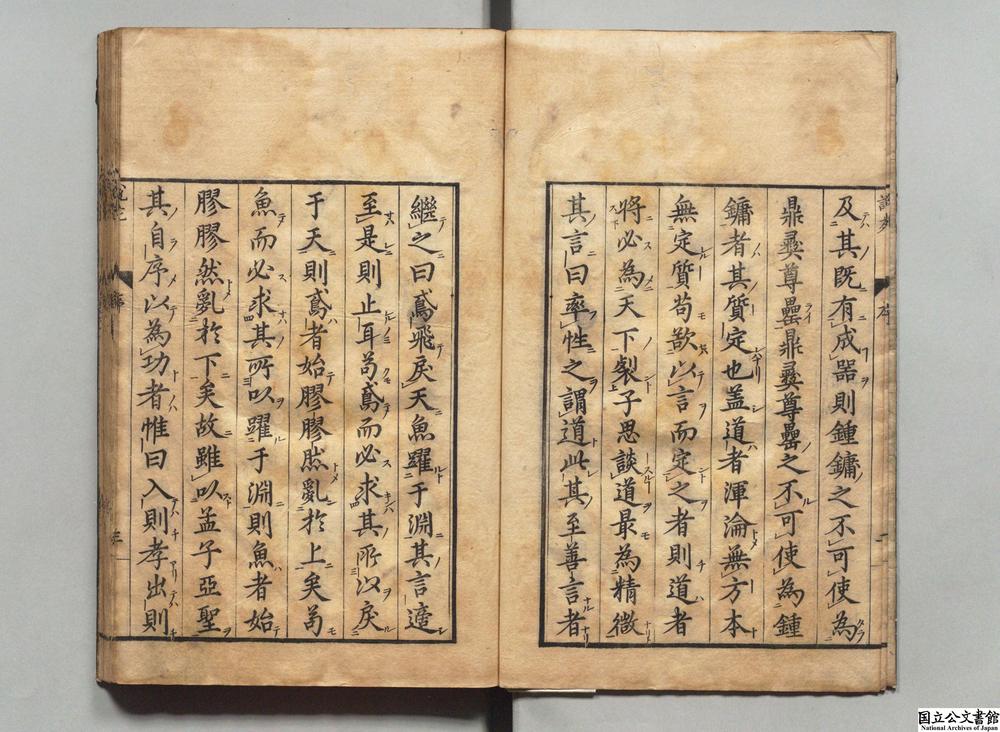 及其既有成器則鍾鏞之不可使為
鼎彝尊罍鼎彝尊罍之不可使為鍾
鏞者其質定也盖道者渾淪無方本
無定質苟欲以言而定之者則道者
將必為天下裂子思談道最為精微
其言曰率性之謂道此其至善言者
繼之曰鳶飛戾天魚躍于淵其言適
至是則止耳苟鳶而必求其所以戾
于天則鳶者始膠膠然亂於上矣苟
魚而必求其所以躍于淵則魚者始
膠膠然亂於下矣故雖以孟子亞聖
其自序以為功者惟曰入則孝出則
序
三
国立公文書館
National Archives of Japan